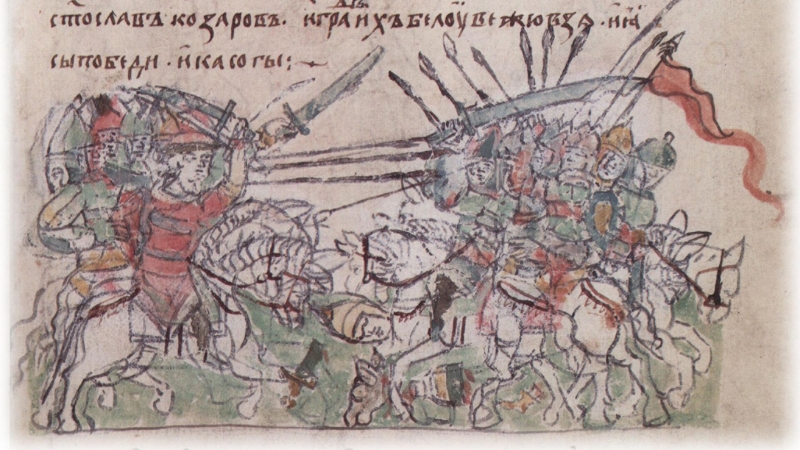 стославъ козаровъ. и градъ ихъ белоувежювзѧ. и ꙗ
сы победи . и касогы :